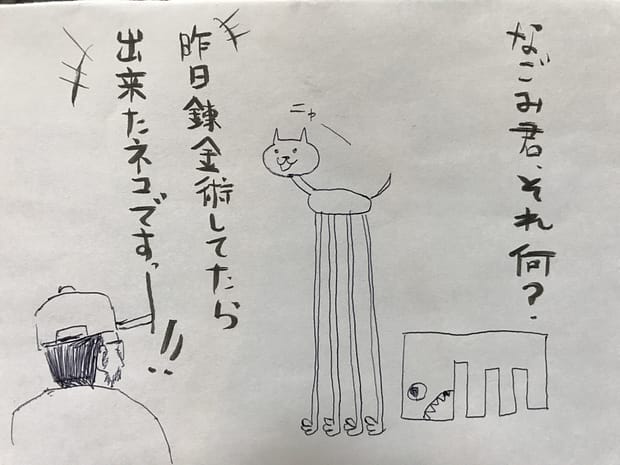 なごみ君、それ何?
ニャ
昨日錬金術してたら
出来たネコですっ!!